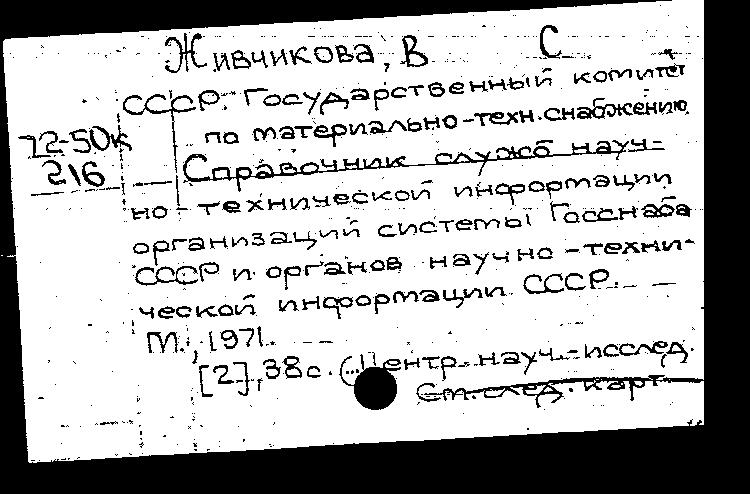 Живчикова, В С
СССР. Государственный комитет
72-50к
по материально-техн. снабжению
216
Справочник служб науч-
но-технической информации
организаций системы Госснаба
СССР и органов научно-техни-
ческой информации СССР.
М., 1971.
[2], 38с. (Центр. науч.-исслед.
См. след. карт